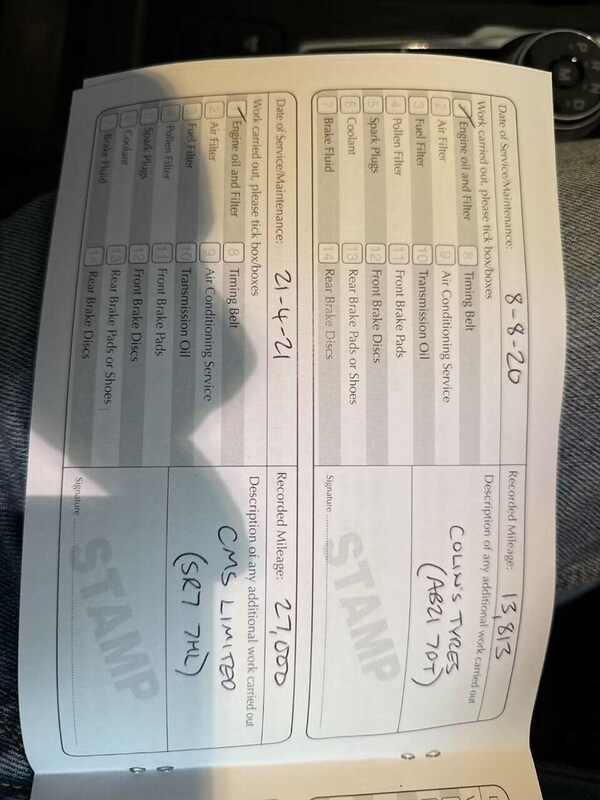 Date of Service/Maintenance: 8-8-20
Recorded Mileage: 13,813
Work carried out, please tick box/boxes
1 Engine oil and Filter
8 Timing Belt
2 Air Filter
9 Air Conditioning Service
3 Fuel Filter
10 Transmission Oil
4 Pollen Filter
11 Front Brake Pads
5 Spark Plugs
12 Front Brake Discs
6 Coolant
13 Rear Brake Pads or Shoes
7 Brake Fluid
14 Rear Brake Discs
Description of any additional work carried out
COLIN'S TYRES
(AB21 7DT)
STAMP
Signature
Date of Service/Maintenance: 21-4-21
Recorded Mileage: 27,000
Work carried out, please tick box/boxes
1 Engine oil and Filter
8 Timing Belt
2 Air Filter
9 Air Conditioning Service
3 Fuel Filter
10 Transmission Oil
4 Pollen Filter
11 Front Brake Pads
5 Spark Plugs
12 Front Brake Discs
6 Coolant
13 Rear Brake Pads or Shoes
7 Brake Fluid
14 Rear Brake Discs
Description of any additional work carried out
CMS LIMITED
(SR7 7HL)
STAMP
Signature
P
R
N
D
M